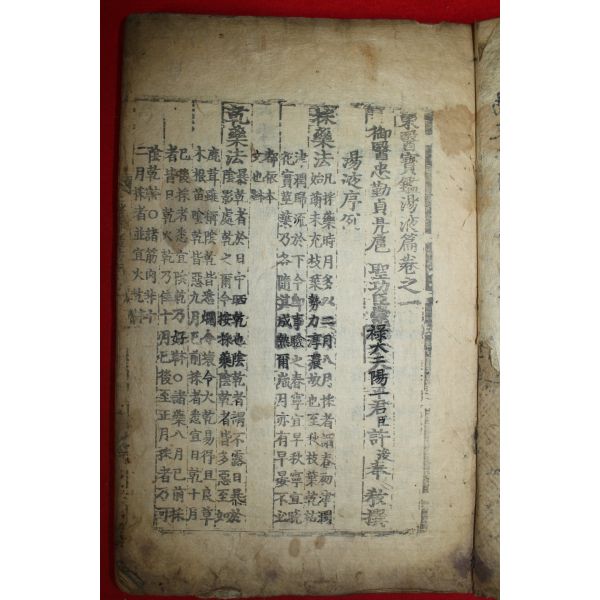 東醫寶鑑湯液篇卷之一
御醫忠勤貞亮扈聖功臣崇祿大夫陽平君臣許浚奉教撰
湯液序例
採藥法凡採藥時月多以二月八月採者謂春初津潤
始萌未充枝葉勢力淳濃故也至秋枝葉乾枯
津潤歸流於下今卽事驗之春寧宜早秋寧宜晩
花實莖葉乃各隨其成熟爾歲月亦有早晏不必
都依本
文也
乾藥法暴乾者於日中晒乾也陰乾者謂不露日暴於
陰影處乾之爾今按採藥陰乾者皆多惡至如
鹿茸雖稱陰乾皆悉爛令壞今火乾易得且良草
木根苗陰乾皆惡九月已前採者悉宜日乾十月
已後採者悉宜陰乾乃好○諸藥八月已前採
者皆日乾火乾乃佳十月已後至正月採者乃可
陰乾○諸筋肉非十
二月採並宜火乾